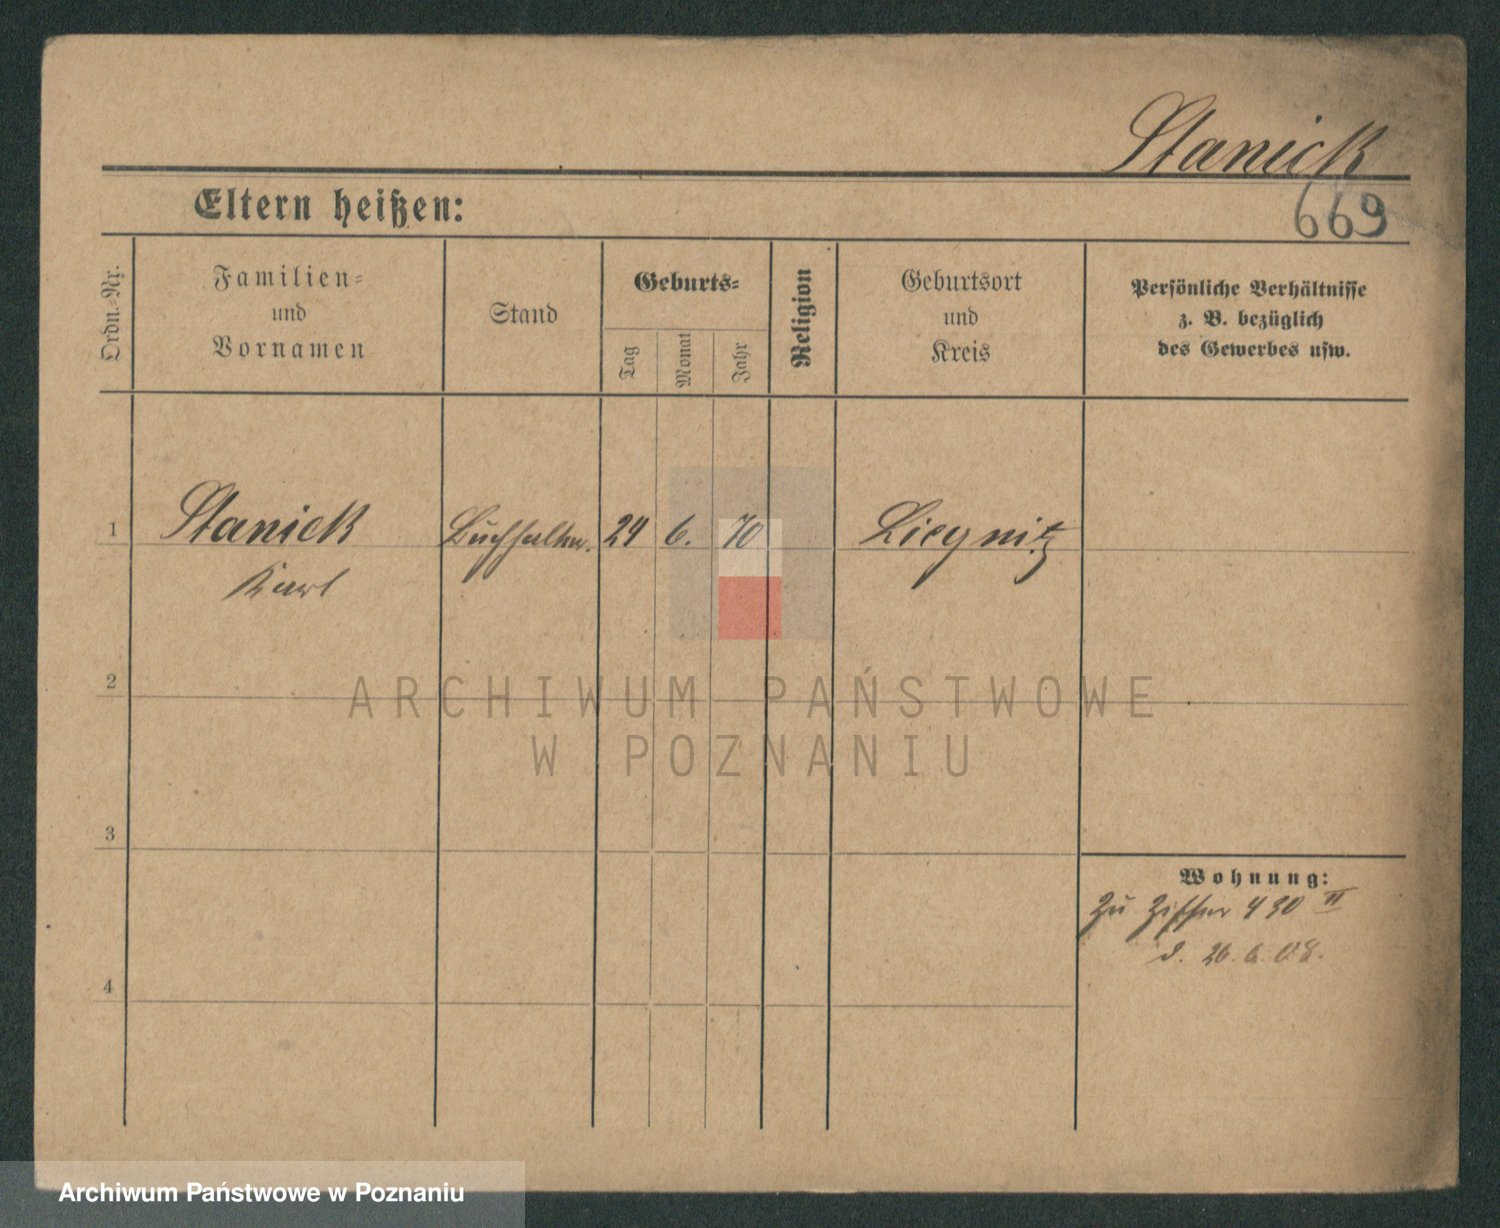 Stanick
Eltern heißen:
669
Ordn.-Nr.
Familien-
und
Vornamen
Stand
Geburts-
Tag
Monat
Jahr
Religion
Geburtsort
und
Kreis
Persönliche Verhältnisse
z. B. bezüglich
des Gewerbes usw.
1
Stanick
Karl
Buchhalter.
24
6.
70
Liegnitz
2
ARCHIWUM PAŃSTWOWE
W POZNANIU
3
Wohnung:
Zu Ziffer 430 II
d. 26.6.08.
4
Archiwum Państwowe w Poznaniu